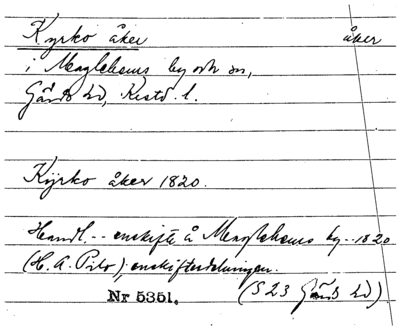 Kyrko åker åker
i Maglehems by och sn,
Gärds hd, Kristd. l.
Kyrko åker 1820.
Handl. -- enskifte å Maglehems by -- 1820
(H. A. ); enskiftesdelningen.
Nr 5351. (S 23 Gärds hd)